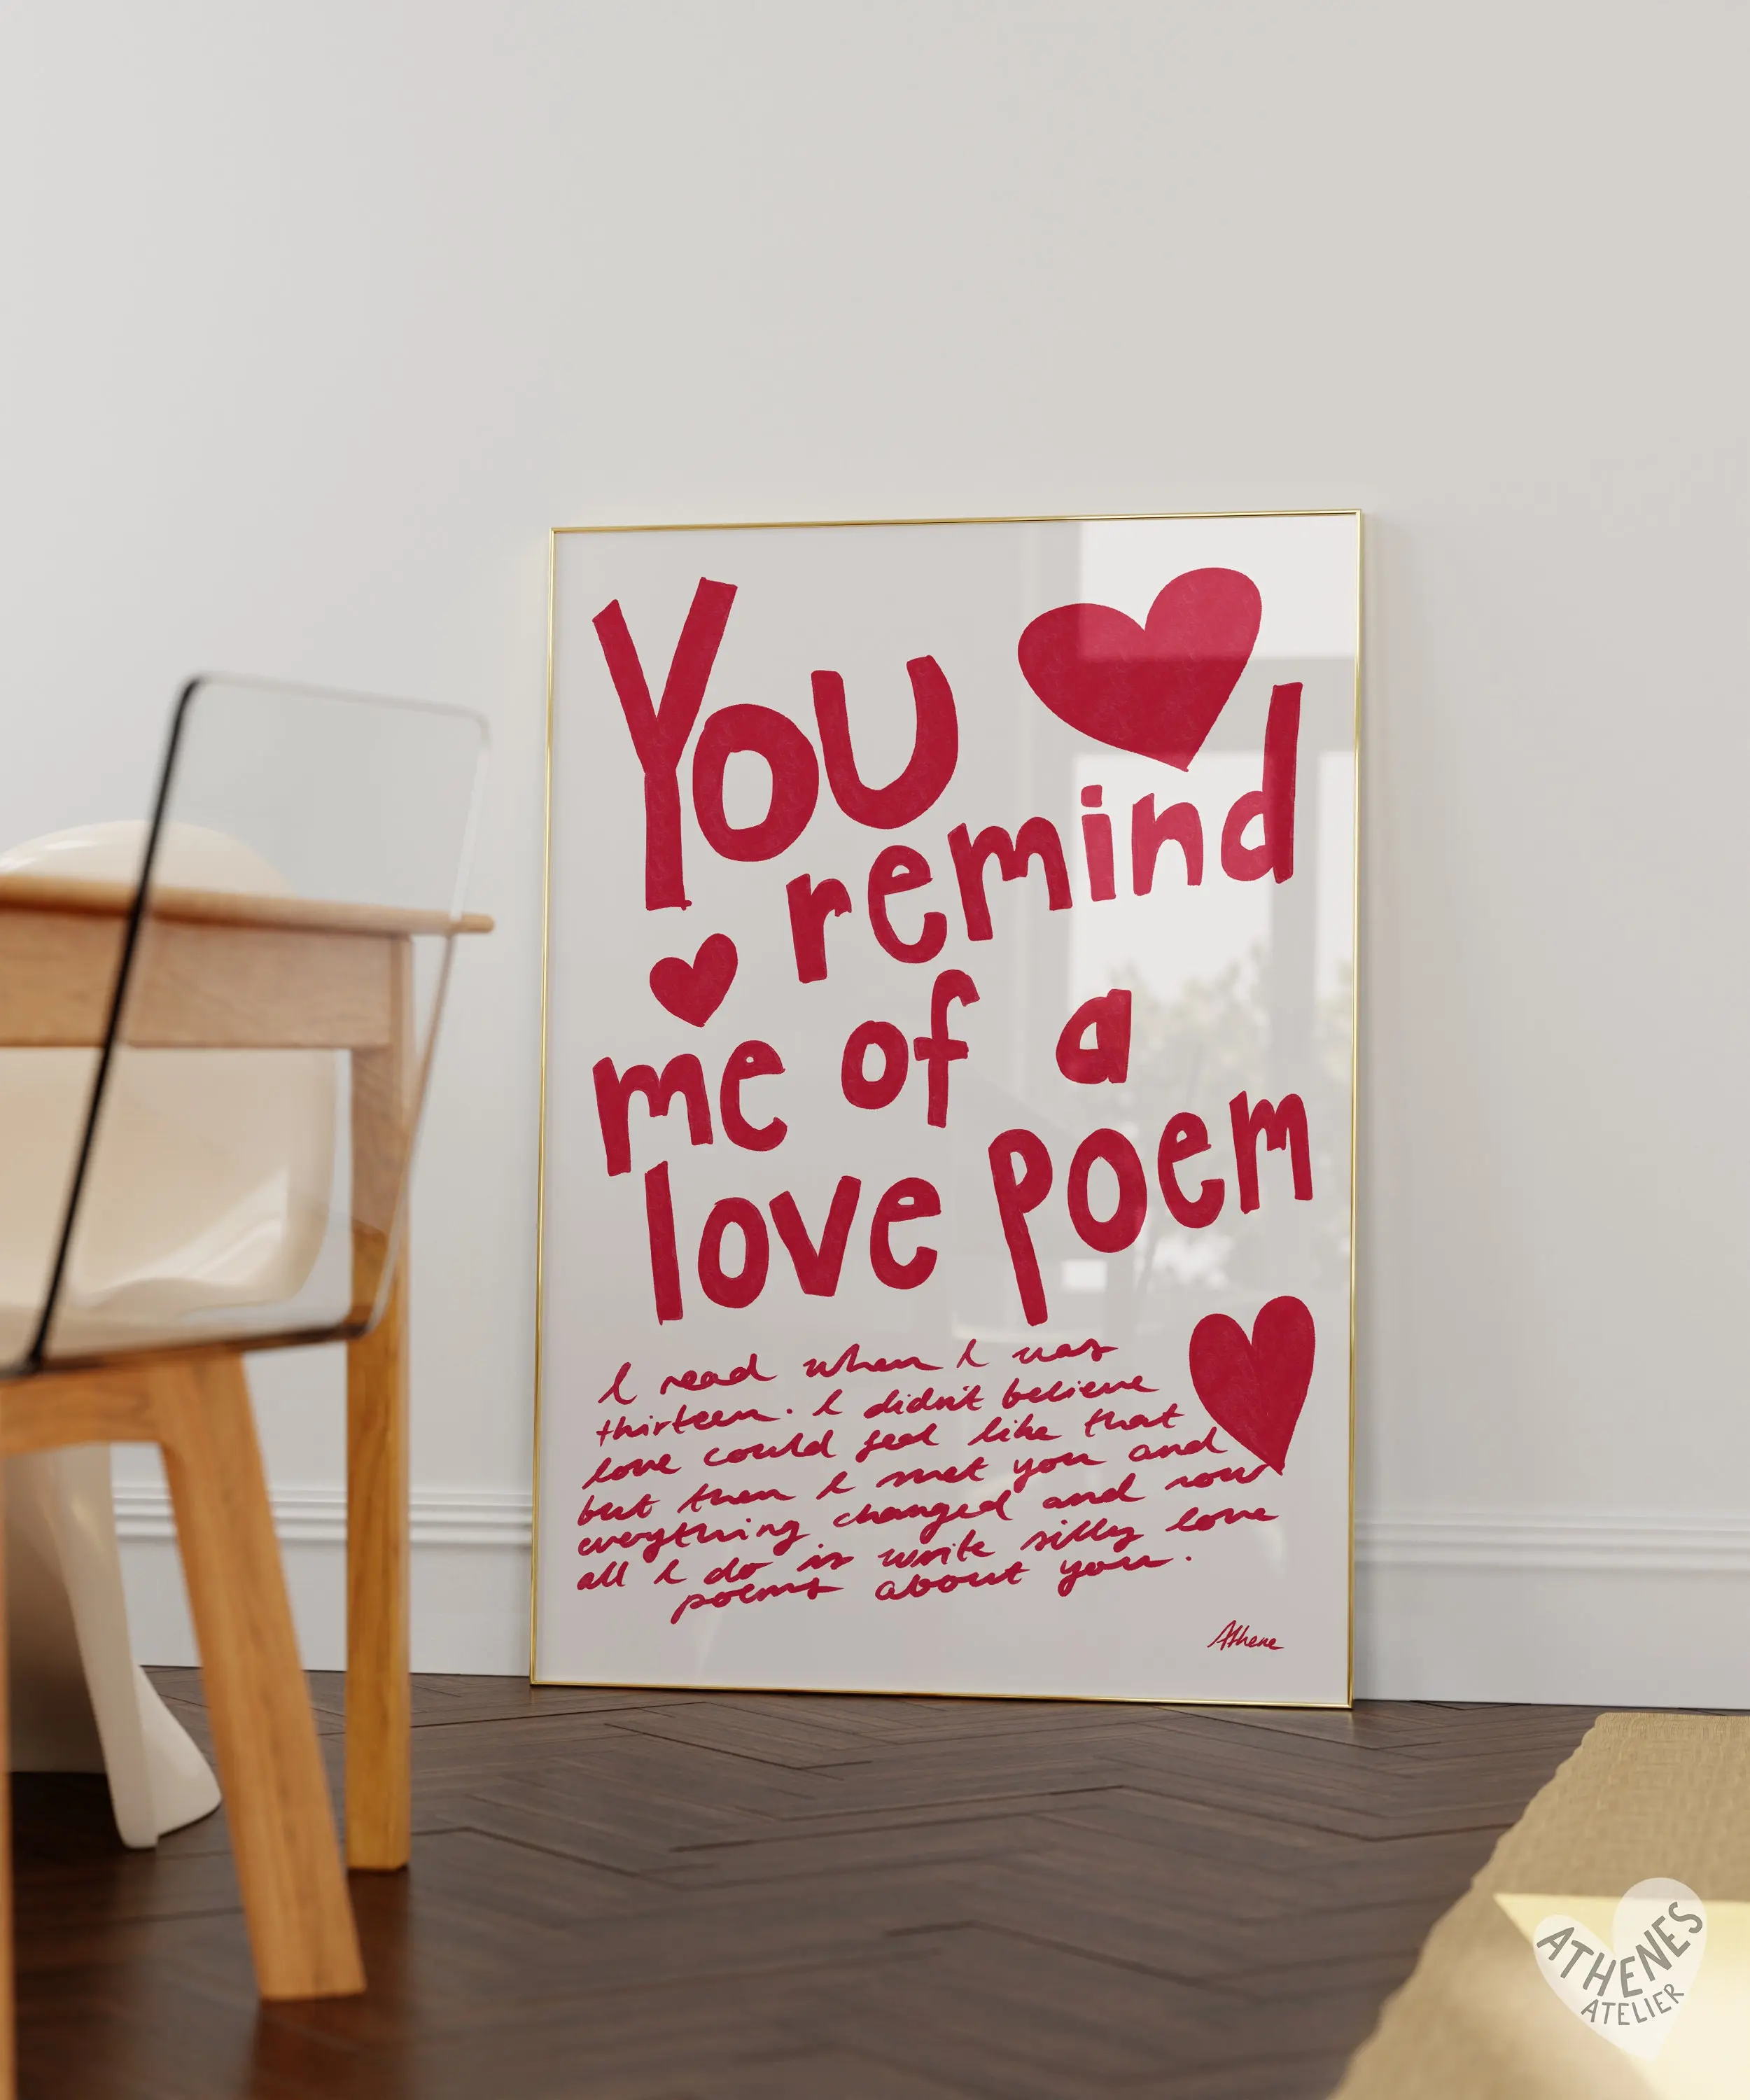 You
remind
me of a
love poem
I read when I was
thirteen. I didn't believe
love could feel like that
but then I met you and
everything changed and now
all I do is write silly love
poems about you.
Athene
ATHENES
ATELIER